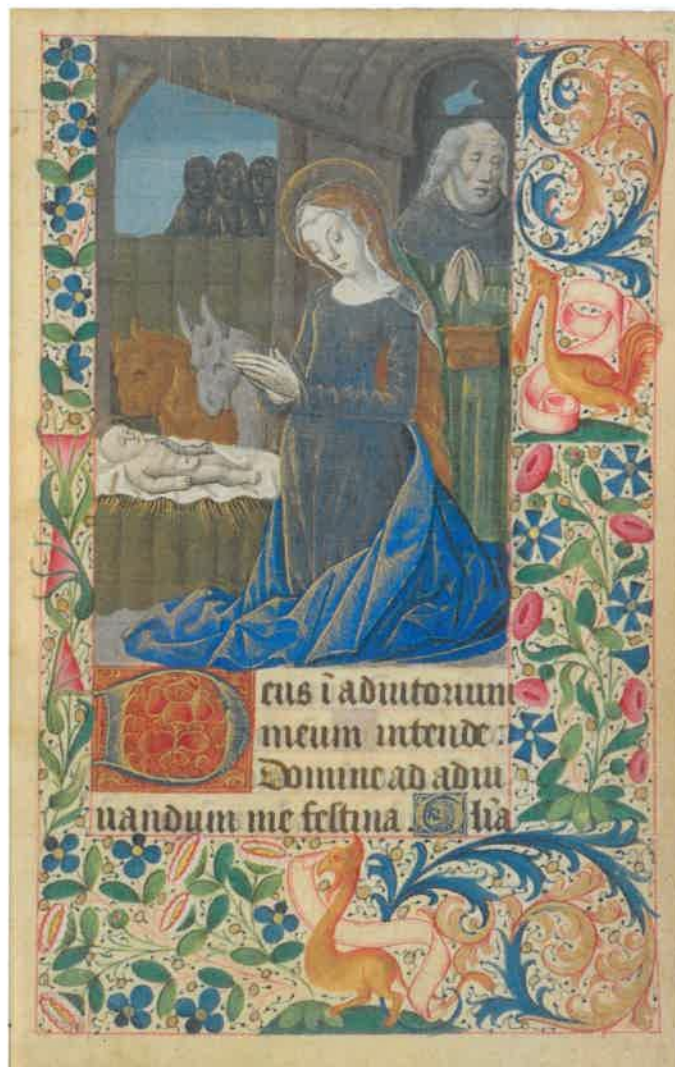 Deus ī adiutorium
meum intende :
Domine ad adiu
uandum me festina . Glīa